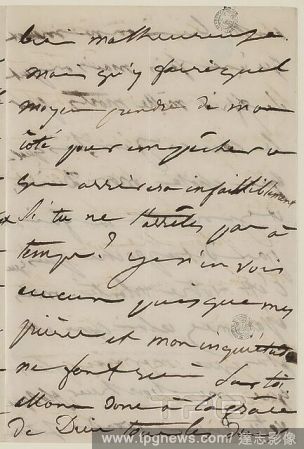 bien malheureuse.
mais qu'y faire quel
moyen prendre de mon
côté pour empêcher ce
qui arrivera infailliblement
si tu ne t'arrêtes pas à
temps? je n'en vois
aucun puisque mes
prières et mon inquiétude
ne font rien sur toi
allons donc à la grâce
de Dieu
www.tpgnews.com 達志影像